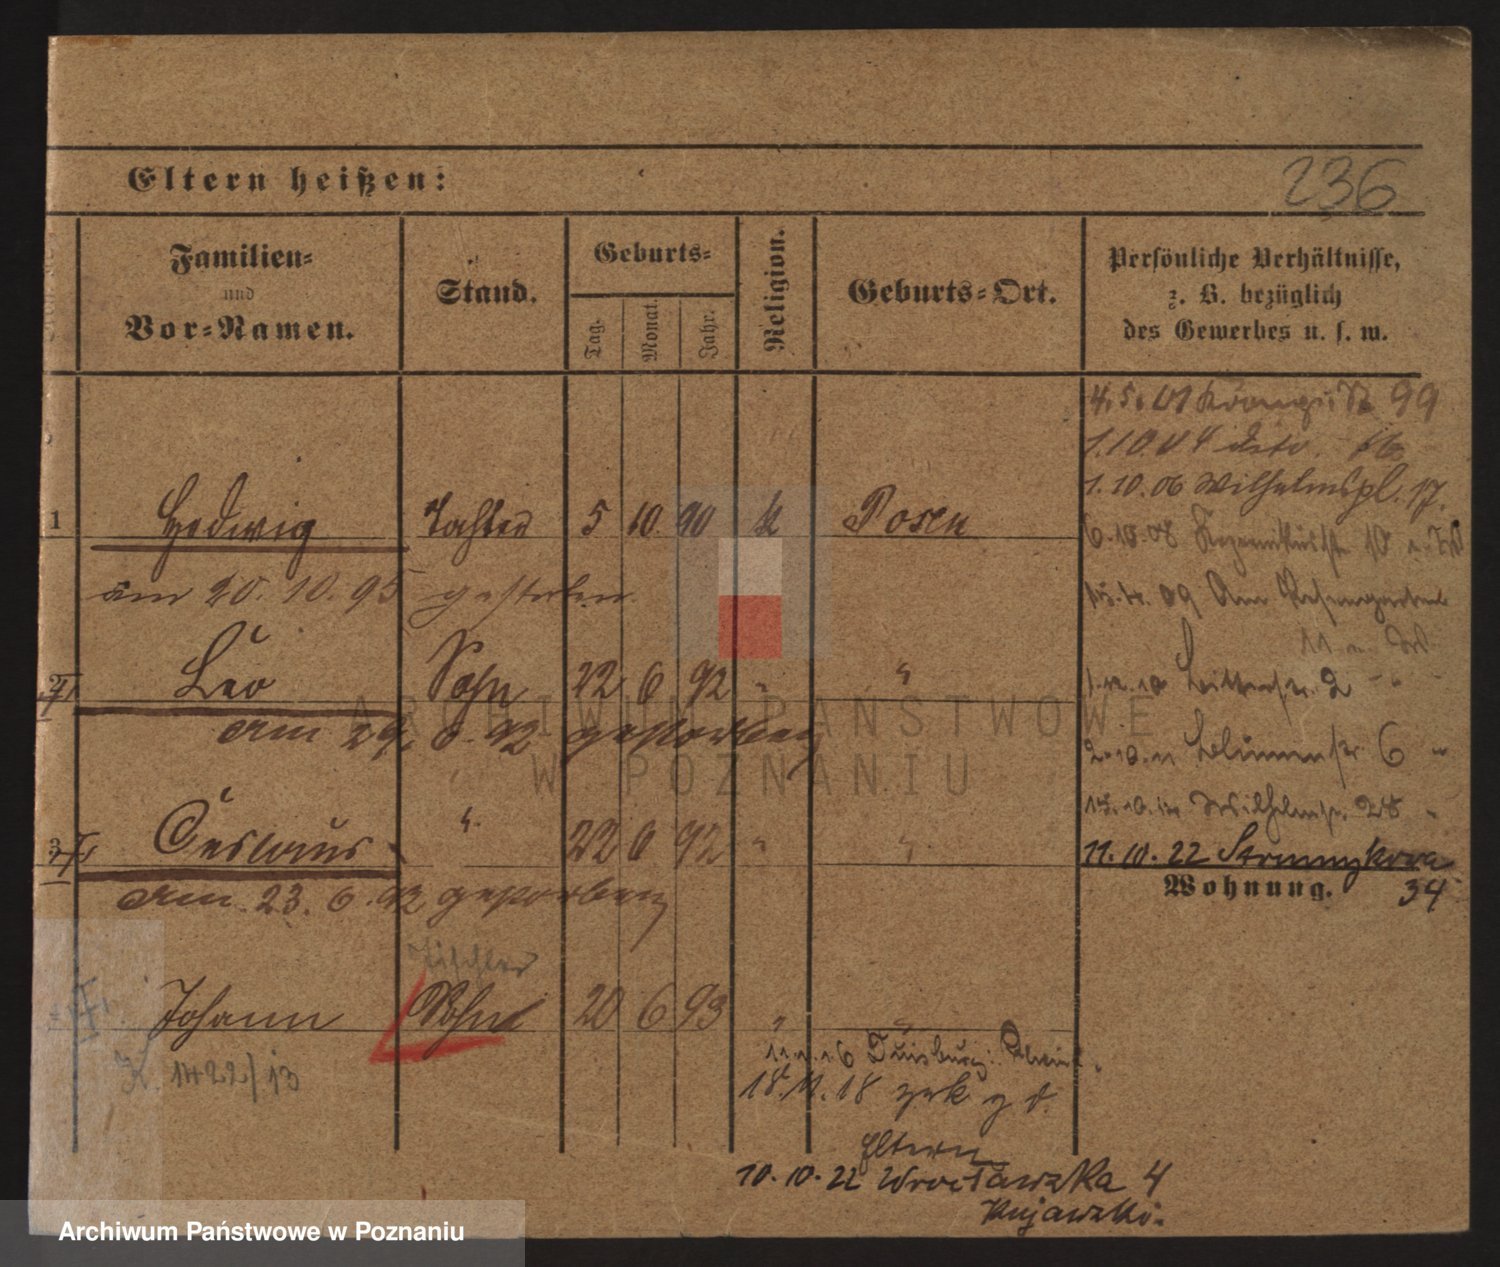 Eltern heißen:
236
Familien-
und
Vor-Namen.
Stand.
Geburts-
Tag.
Monat.
Jahr.
Religion.
Geburts-Ort.
Persönliche Verhältnisse,
z. B. bezüglich
des Gewerbes u. s. w.
4.5.01 99
1.10.04 dto. 86
1.10.06 Wilhelmspl. 17.
1 Hedwig Tochter 5 10 90 k Posen
6.10.08 10
am 20.10.95 gestorben.
15.4.09 Am Rosengarten
11
2 Leo Sohn 22 6 92 " "
1.12.10 Ritterstr. 2 "
am 29. 6. 92 gestorben
2.10.11 Blumenstr. 6 "
15.10.12 Wilhelmstr. 28 "
3 Ceslaus " 22 6 92 " "
11.10.22 Strumykowa
34
Wohnung.
am 23. 6. 92 gestorben
Tischler
Johann Sohn 20 6 93 " "
K. 1422/13
Duisburg
18.11.18 zrk z d.
Eltern
10.10.22 Wrocławska 4
Kujawski.
ARCHIWUM PAŃSTWOWE
W POZNANIU
Archiwum Państwowe w Poznaniu